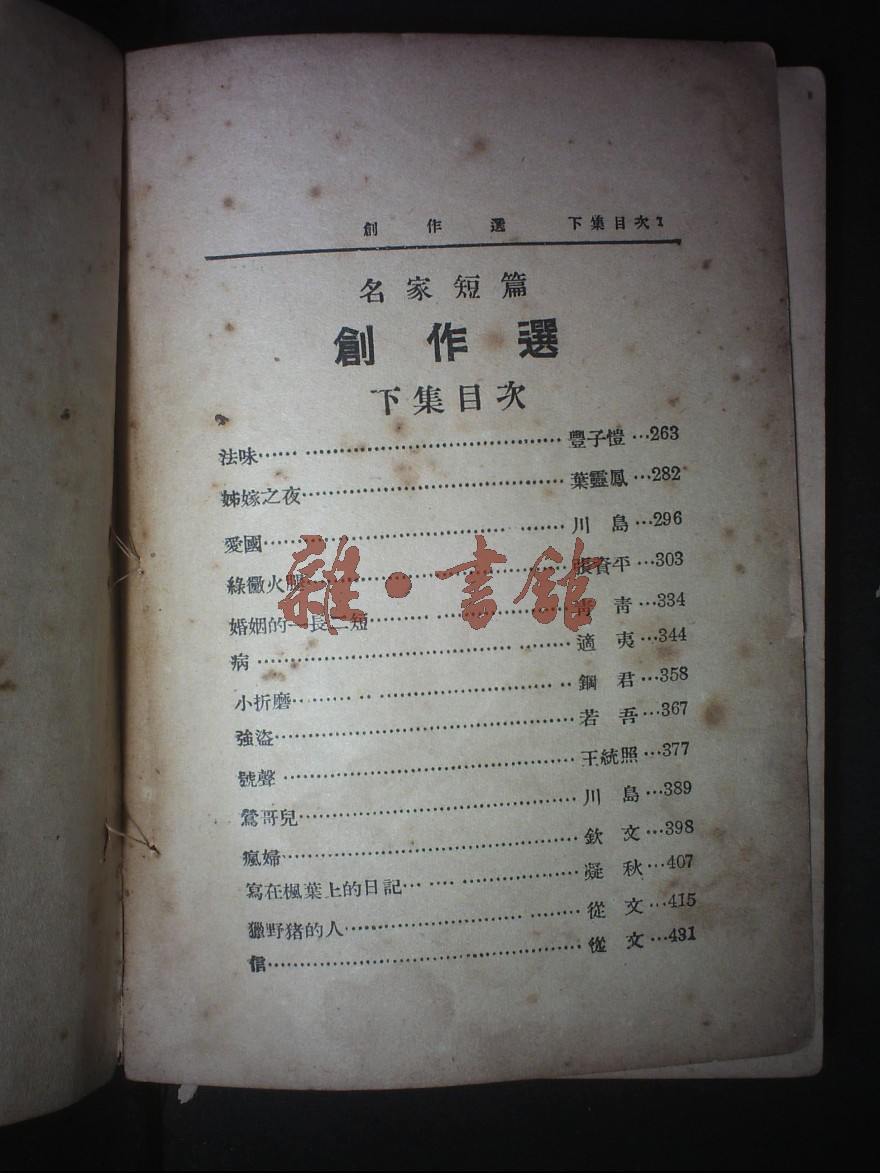 創作選 下集目次1
名家短篇
創作選
下集目次
法味…… ……………………………豐子愷…263
姊嫁之夜………………………………葉靈鳳…282
愛國……………………………………川島…296
綠黴火腿………………………………張資平…303
婚姻的一長二短…… …………………青青…334
病 ……………………………………適夷…344
小折磨……… ‥ ……………………鋼君…358
強盜……………………………………若吾…367
號聲 …………………………………王統照…377
鶯哥兒…………………………………川島…389
瘋婦……………………………………欽文…398
寫在楓葉上的日記… …… …………凝秋…407
獵野猪的人……………………………從文…415
信………………………………………從文…431
雜·書館